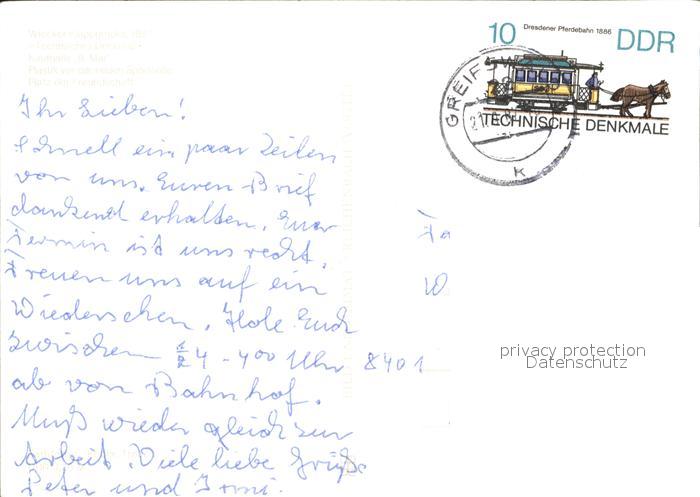 10
Dresdener Pferdebahn 1886
DDR
TECHNISCHE DENKMALE
GREIF
k
Ihr Lieben!
Schnell ein paar Zeilen
von uns. Euren Brief
dankend erhalten. Euer
Termin ist uns recht.
Freuen uns auf ein
Wiedersehen. Hole Euch
zwischen ½ 4 - 4 00 Uhr
ab vom Bahnhof.
Muß wieder gleich zur
Arbeit. Viele liebe Grüße
Peter und Irmi.
Fa
W
8401
privacy protection
Datenschutz